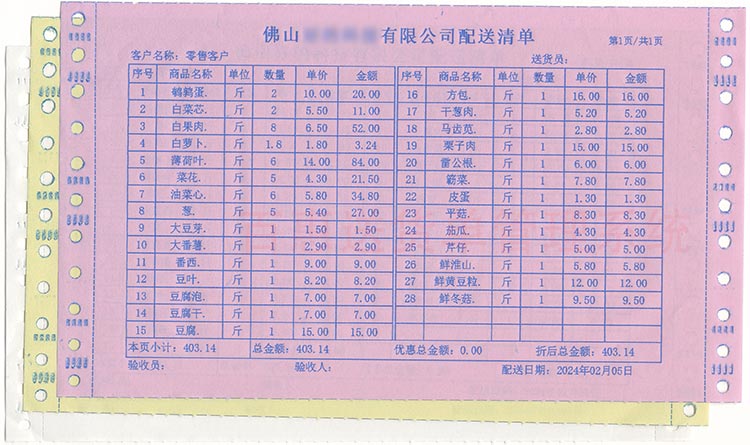 佛山 有限公司配送清单
第1页/共1页
客户名称：零售客户 送货员：
序号 商品名称 单位 数量 单价 金额 序号 商品名称 单位 数量 单价 金额
1 鹌鹑蛋. 斤 2 10.00 20.00 16 方包. 斤 1 16.00 16.00
2 白菜芯. 斤 2 5.50 11.00 17 干葱肉. 斤 1 5.20 5.20
3 白果肉. 斤 8 6.50 52.00 18 马齿苋. 斤 1 2.80 2.80
4 白萝卜. 斤 1.8 1.80 3.24 19 栗子肉 斤 1 15.00 15.00
5 薄荷叶. 斤 6 14.00 84.00 20 雷公根. 斤 1 6.00 6.00
6 菜花. 斤 5 4.30 21.50 21 簕菜. 斤 1 7.80 7.80
7 油菜心. 斤 6 5.80 34.80 22 皮蛋 斤 1 1.30 1.30
8 葱. 斤 5 5.40 27.00 23 平菇. 斤 1 8.30 8.30
9 大豆芽. 斤 1 1.50 1.50 24 茄瓜. 斤 1 4.30 4.30
10 大番薯. 斤 1 2.90 2.90 25 芹仔. 斤 1 5.00 5.00
11 番西. 斤 1 9.00 9.00 26 鲜淮山. 斤 1 5.80 5.80
12 豆叶. 斤 1 8.20 8.20 27 鲜黄豆粒. 斤 1 12.00 12.00
13 豆腐泡. 斤 1 7.00 7.00 28 鲜冬菇. 斤 1 9.50 9.50
14 豆腐干. 斤 1 7.00 7.00
15 豆腐. 斤 1 15.00 15.00
本页小计：403.14 总金额：403.14 优惠总金额：0.00 折后总金额：403.14
验收员： 验收人： 配送日期：2024年02月05日